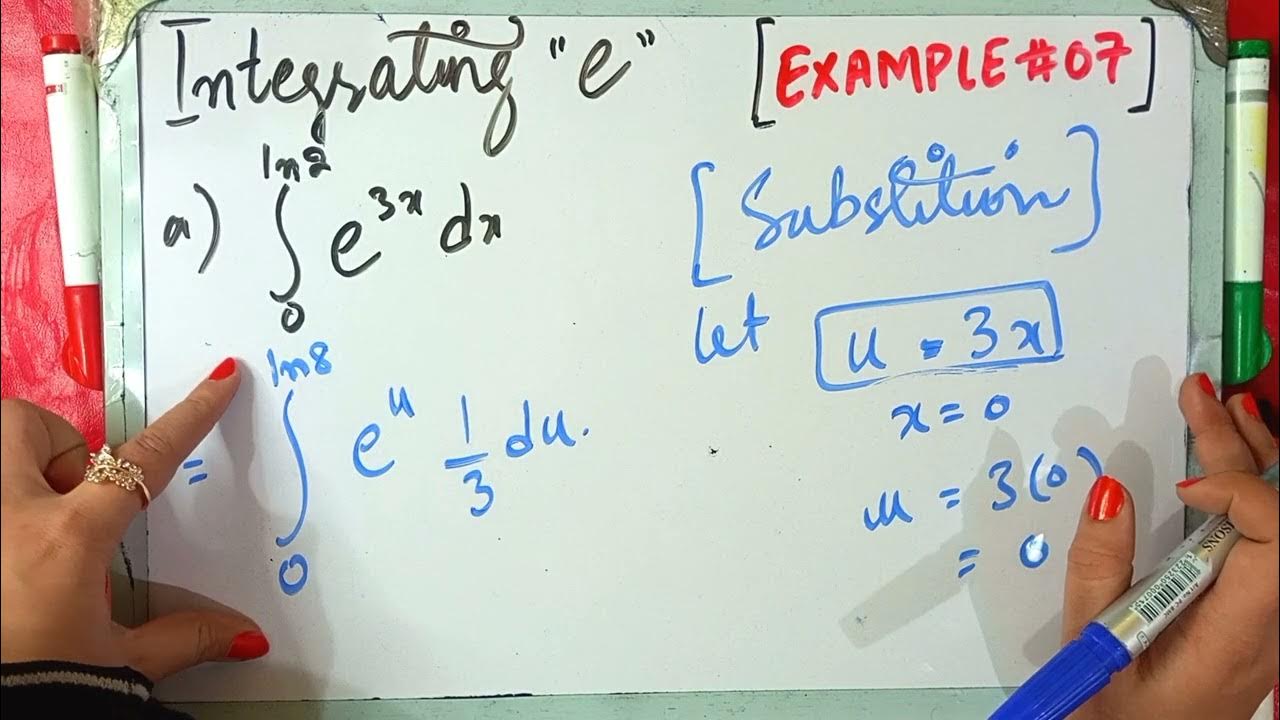 Integrating "e" [EXAMPLE #07]
a) ∫₀^{ln2} e^{3x} dx
= ∫₀^{ln8} e^u 1/3 du.
[Substition]
let u = 3x
x = 0
u = 3(0)
= 0